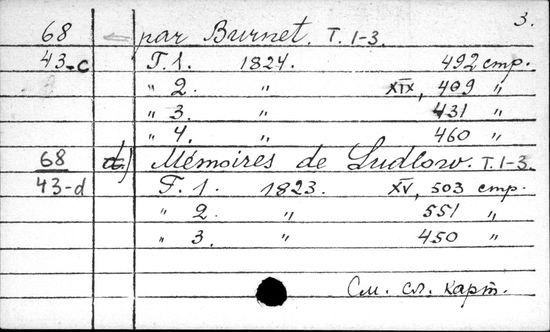 3.
68 par Burnet. T. 1-3.
43-c T. 1. 1824. 492 стр.
" 2. " XIX, 409 "
" 3. " 431 "
" 4. " 460 "
68 d) Mémoires de Ludlow. T. 1-3.
43-d T. 1. 1823. XV, 503 стр.
" 2. " 551 "
" 3. " 450 "
См. сл. карт.